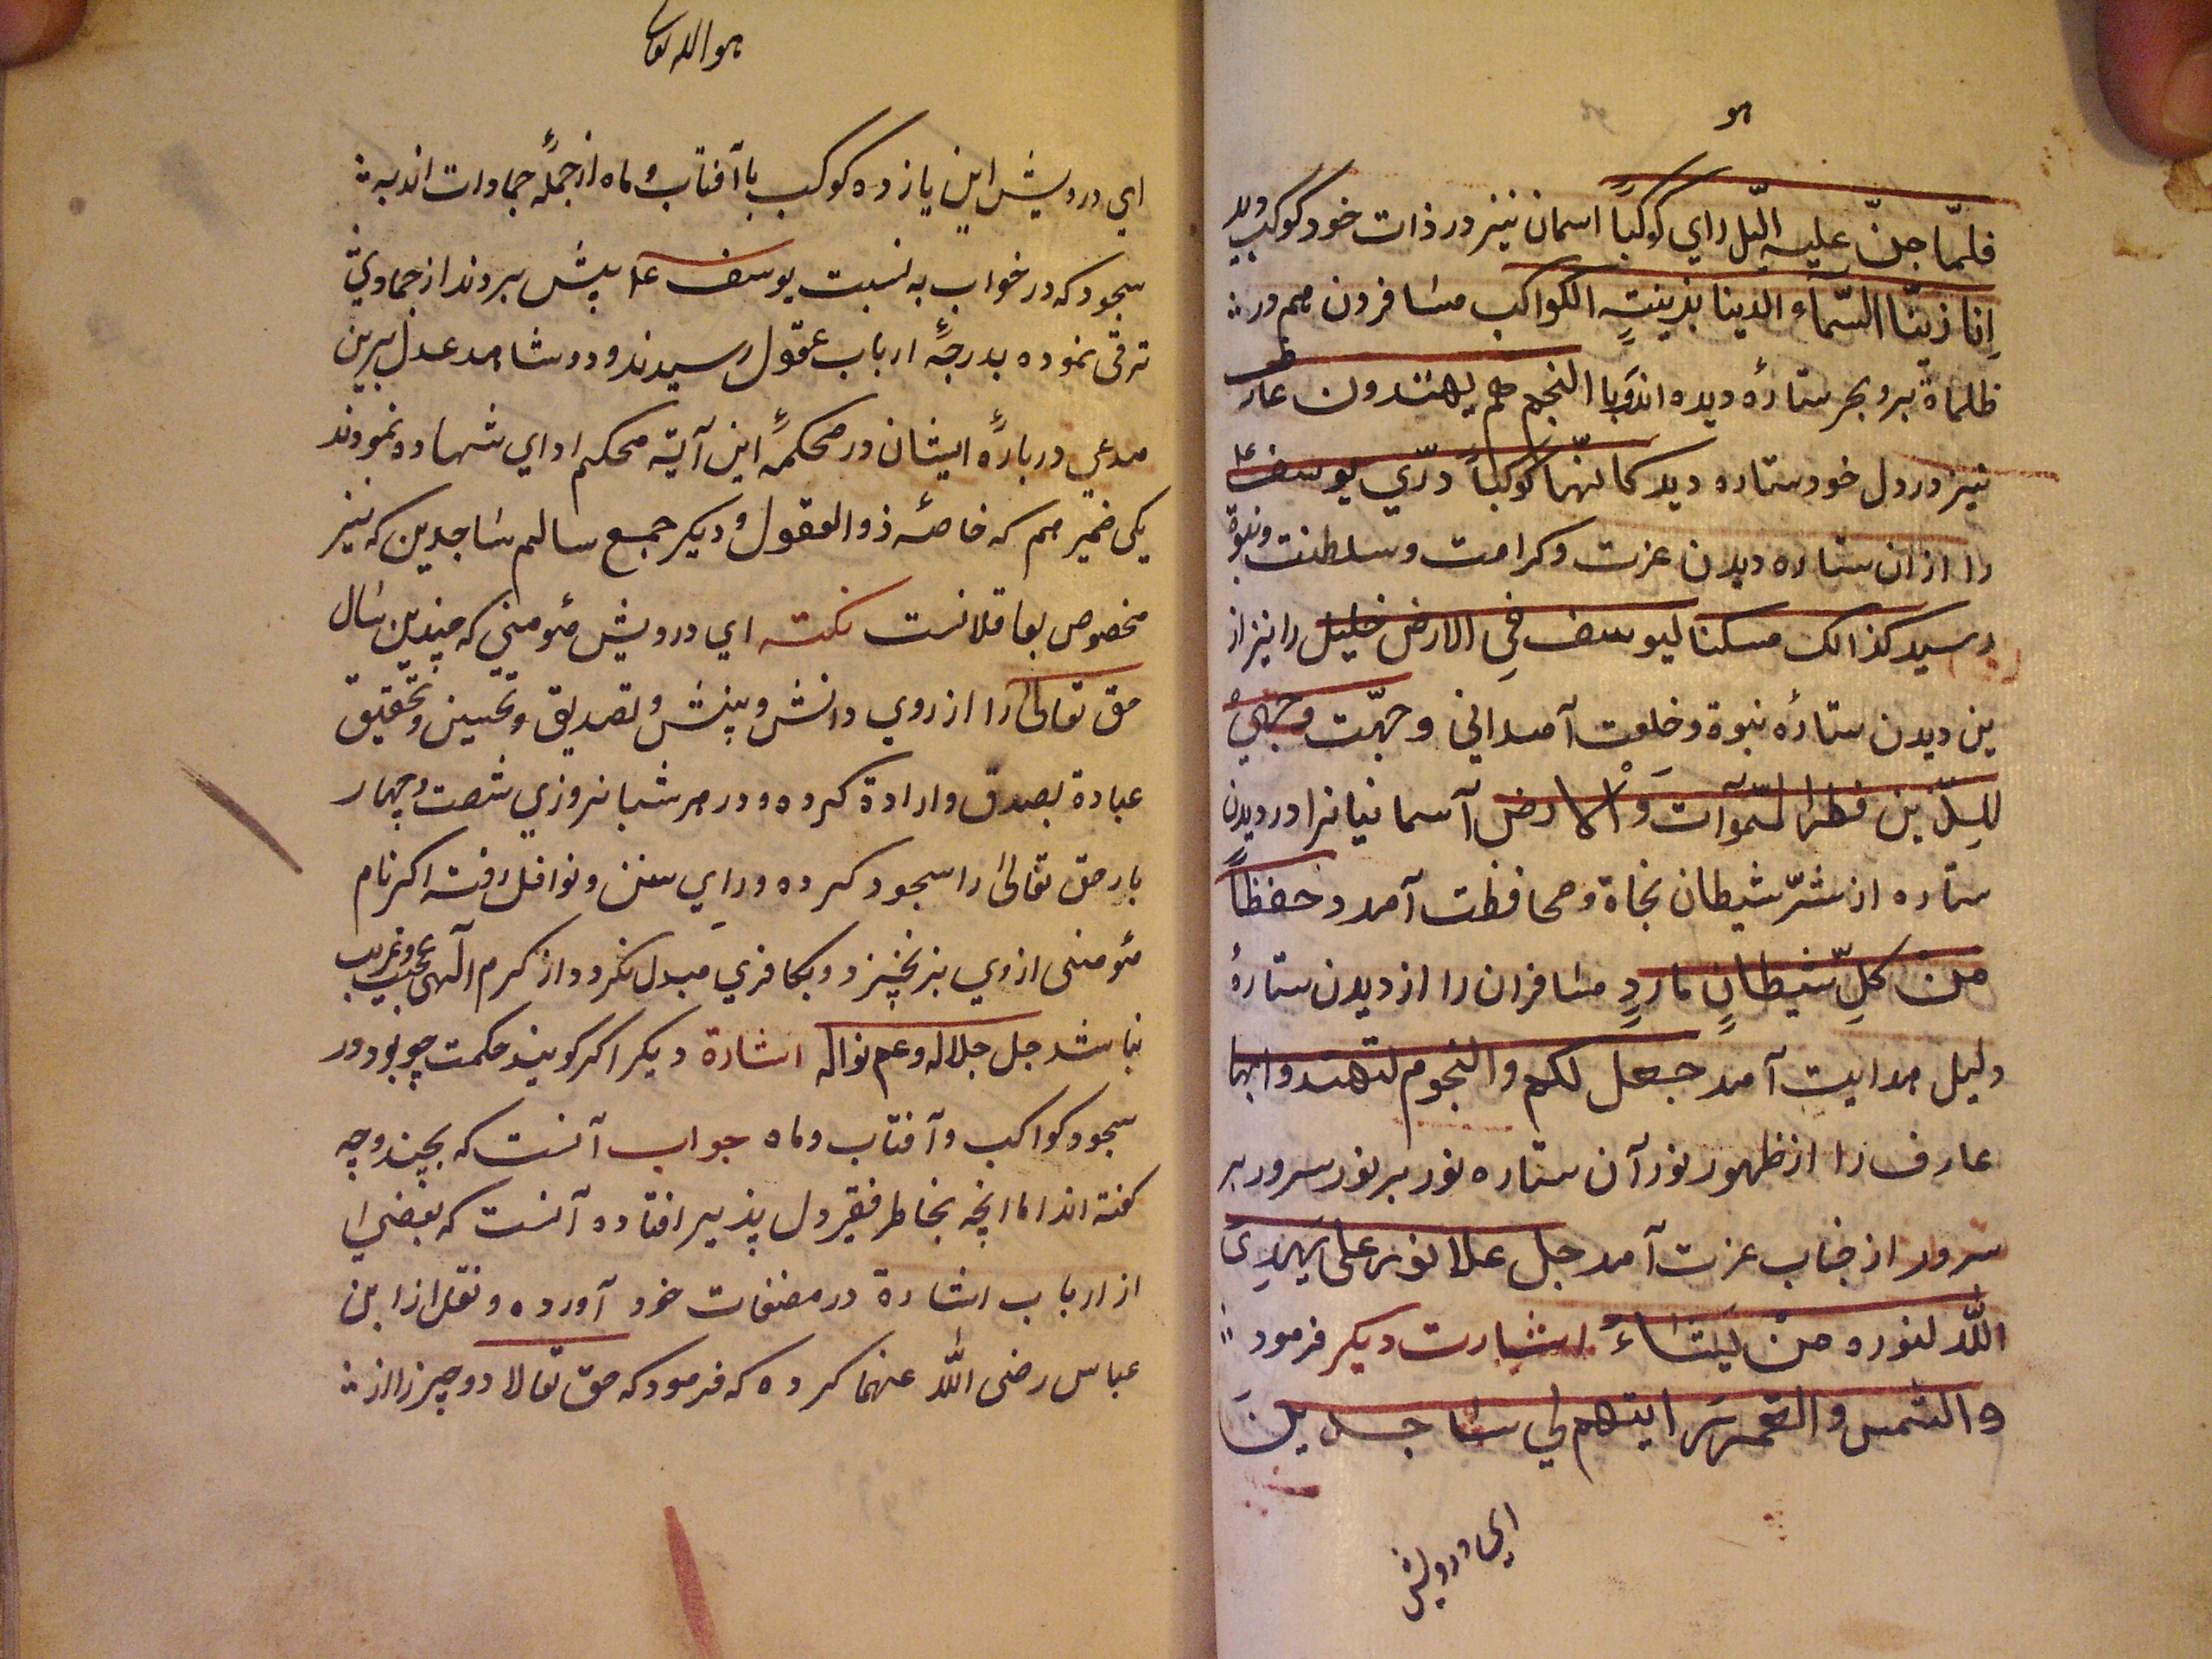 هو
فلمّا جنّ عليه الّيل راي كوكباً اسمان نيز در ذات خود كوكب ديد
اِنا زيّنا السّمآء الدينا بزينةٍ الكواكب مسافرون هم در
ظلماة بر و بحر ستارهٔ ديده اند و با النجم هم يهتدون عارف
نيز در دل خود ستاره ديد كانّها كوكباً درّي يوسف ع
را ازان ستاره ديدن عزت و كرامت و سلطنت و نبوة
رسيد كذالك مسكنا ليوسف في الارض خليل را نيز از
ين ديدن ستارهٔ نبوة و خلعت آمد اني وجهّت وجهي
للذّين فطر السّموآت وَالارض آسمانيانرا در ديدن
ستاره از شرّ شيطان نجاة و محافظت آمد و حفظاً
من كلِ شيطانٍ ماردٍ مسافران را از ديدن ستارهٔ
دليل هدايت آمد جعل لكم والنجوم لتهتدوا بها
عارف را از ظهور نور آن ستاره نور بر نور سرور بر
سرور از جناب عزت آمد جل علا نور على يهدي
اللّٰه لنوره منْ يَشاءُ اشارت ديكر فرمود
والشمس والقمر رايتهم لي ساجدين
اي درويش
هو الله تعالى
اي درويش اين يازده كوكب با آفتاب و ماه از جملهٔ جمادات اند به
سجود كه در خواب به نسبت يوسف ع پيش بردند از جمادي
ترقى نموده بدرجهٔ ارباب عقول رسيدند و دو شاهد عدل برين
مدعي دربارهٔ ايشان در محكمهٔ اين آية محكم اداي شهاده نمودند
يكى ضمير هم كه خاصهٔ ذوالعقول و ديكر جمع سالم ساجدين كه نيز
مخصوص بعاقلانست نكته اي درويش مؤمنى كه چندين سال
حق تعالىٰ را از روي دانش و بينش و تصديق و تحسين و تحقيق
عبادة بصدق و ارادة كرده و در هر شبانروزي شصت و چهار
بار حق تعالىٰ را سجود كرده وراي سنن و نوافل رفت اكر نام
مؤمنى از وي بر نخيزد و بكافري مبدل نكردد از كرم الٓهى عجيب و غريب
نباشد جل جلاله و عم نواله اشارة ديكر اكر كويند حكمت چو بود در
سجود كواكب و آفتاب و ماه جواب آنست كه بچند وجه
كفته اند اما انچه بخاطر فقير دل پذير افتاده آنست كه بعضي ا
از ارباب اشارة در مصنفات خود آورده و نقل از ابن
عباس رضى اللّٰه عنهما كرده كه فرمود كه حق تعالا دو چيز را از